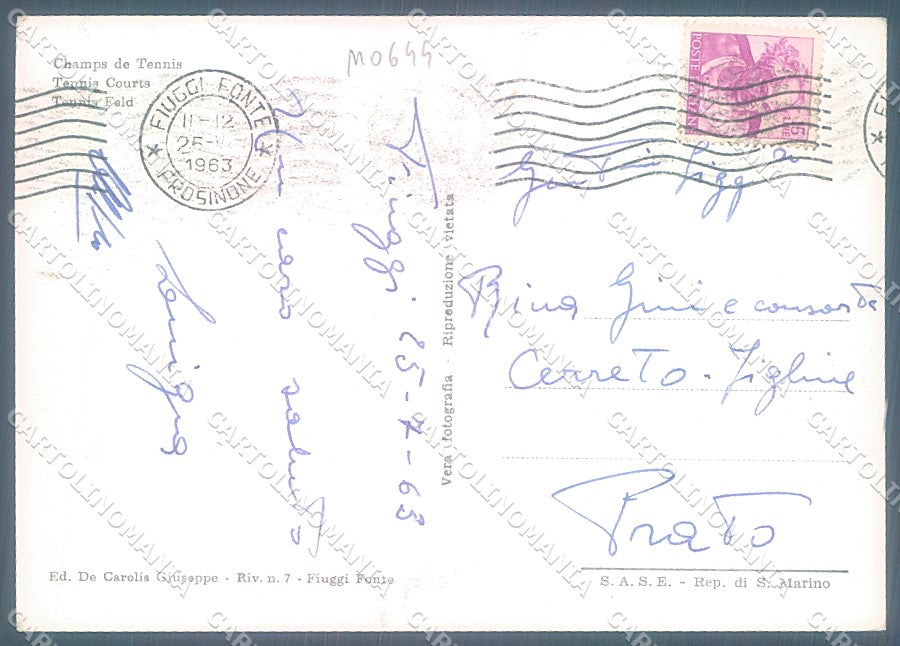 M0644
Champs de Tennis
Tennis Courts
Tennis Feld
FIUGGI FONTE
11-12
25-
1963
* FROSINONE *
POSTE ITALIANE
15
Fiuggi 25-7-63
Un caro saluto
Vera fotografia - Riproduzione vietata
Rina Gini e consorte
Cerreto - Figline
Prato
Ed. De Carolis Giuseppe - Riv. n. 7 - Fiuggi Fonte
S. A. S. E. - Rep. di S. Marino
CARTOLINOMANIA